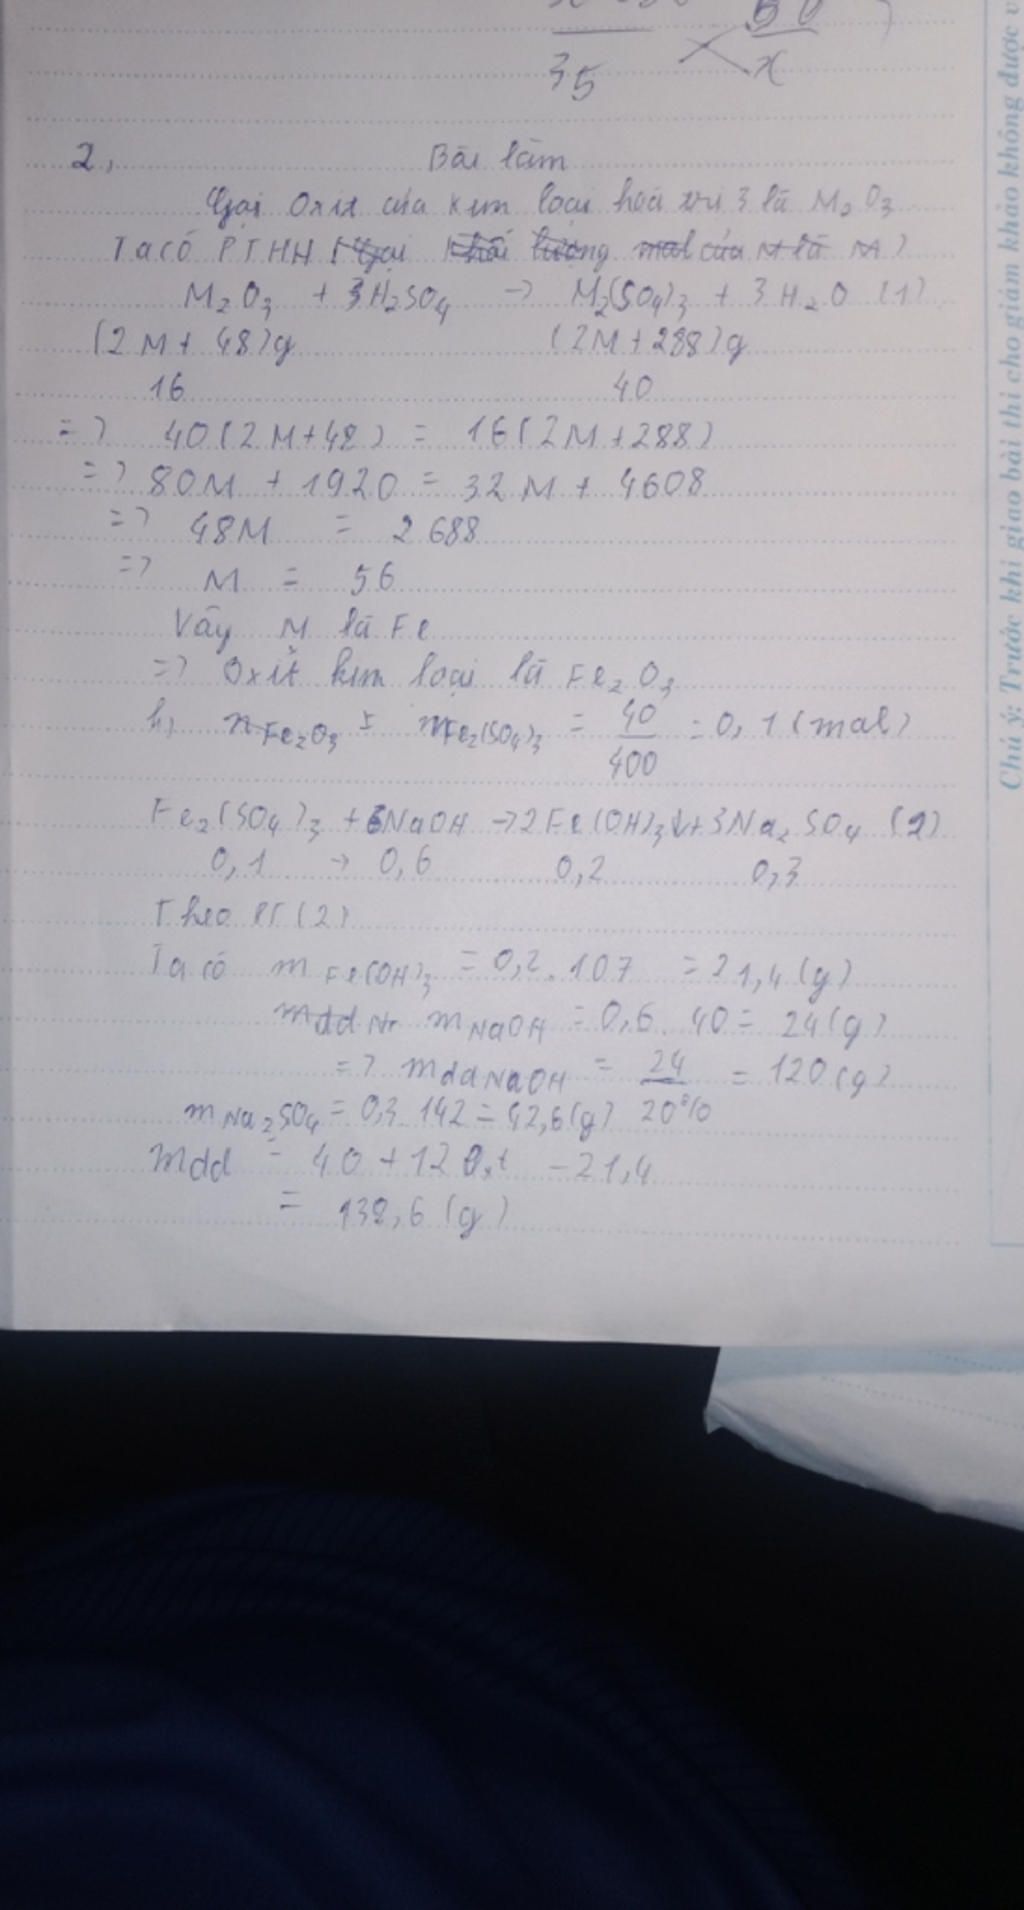 35 x
2, Bài làm
Gọi Oxit của kim loại hóa trị 3 là M₂O₃
Ta có PTHH (Gọi khối lượng mol của M là M)
M₂O₃ + 3H₂SO₄ -> M₂(SO₄)₃ + 3H₂O (1)
(2M + 48)g (2M + 288)g
16 40
=> 40(2M+48) = 16(2M+288)
=> 80M + 1920 = 32M + 4608
=> 48M = 2688
=> M = 56
Vậy M là Fe
=> Oxit kim loại là Fe₂O₃
b, nFe₂O₃ = nFe₂(SO₄)₃ = 40/400 = 0,1 (mol)
Fe₂(SO₄)₃ + 6NaOH -> 2Fe(OH)₃↓ + 3Na₂SO₄ (2)
0,1 -> 0,6 0,2 0,3
Theo PT(2)
Ta có mFe(OH)₃ = 0,2.107 = 21,4 (g)
mdd mNaOH = 0,6.40 = 24(g)
=> mddNaOH = 24/20% = 120(g)
mNa₂SO₄ = 0,3.142 = 42,6(g)
mdd = 40 + 120 - 21,4
= 138,6 (g)
Chú ý: Trước khi giao bài thi cho giám khảo không được